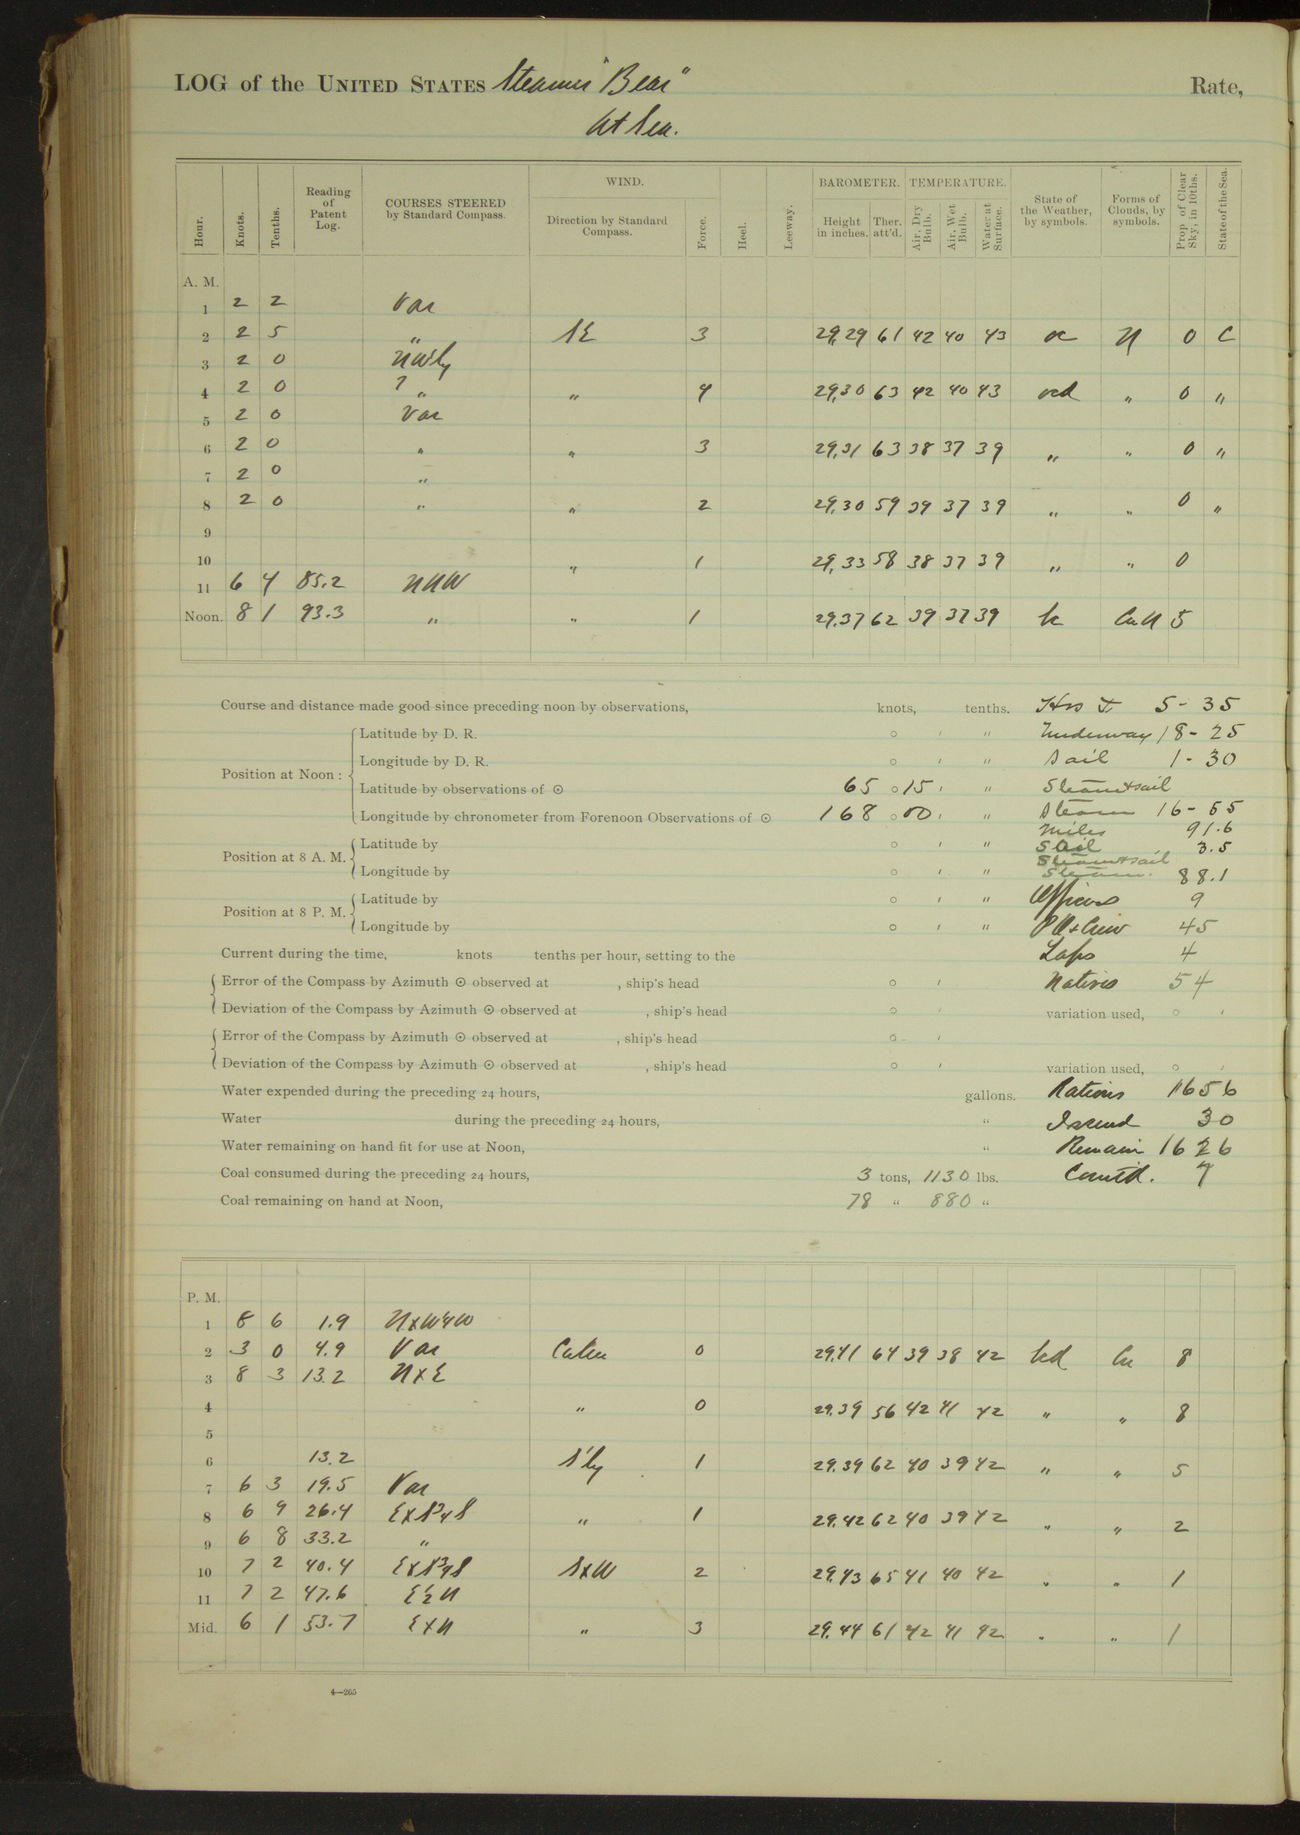 LOG of the UNITED STATES Steamer "Bear" Rate,
At Sea.
Hour. Knots. Tenths. Reading of Patent Log. COURSES STEERED by Standard Compass. WIND. Direction by Standard Compass. Force. Heel. Leeway. BAROMETER. Height in inches. Ther. att'd. TEMPERATURE. Air, Dry Bulb. Air, Wet Bulb. Water at Surface. State of the Weather, by symbols. Forms of Clouds, by symbols. Prop. of Clear Sky, in 10ths. State of the Sea.
A. M.
1 2 2 Var
2 2 5 " SE 3 29.29 61 42 40 43 oc N 0 C
3 2 0 NW'ly
4 2 0 " " 4 29.30 63 42 40 43 ocd " 0 "
5 2 0 Var
6 2 0 " " 3 29.31 63 38 37 39 " " 0 "
7 2 0 "
8 2 0 " " 2 29.30 59 39 37 39 " " 0 "
9
10 " 1 29.33 58 38 37 39 " " 0
11 6 4 85.2 NNW
Noon. 8 1 93.3 " " 1 29.37 62 39 37 39 bc Cu N 5
Course and distance made good since preceding noon by observations, knots, tenths. Hrs 5-35
Position at Noon: Latitude by D. R. ° ' " Underway 18-25
Longitude by D. R. ° ' " Sail 1-30
Latitude by observations of ☉ 65 ° 15 ' " Steam & sail
Longitude by chronometer from Forenoon Observations of ☉ 168 ° 00 ' " Steam 16-55
Miles 91.6
Position at 8 A. M. Latitude by ° ' " Sail 3.5
Steam & sail
Longitude by ° ' " Steam. 88.1
Position at 8 P. M. Latitude by ° ' " Officers 9
Longitude by ° ' " PO & Crew 45
Current during the time, knots tenths per hour, setting to the Laps 4
Error of the Compass by Azimuth ☉ observed at , ship's head ° ' Natives 54
Deviation of the Compass by Azimuth ☉ observed at , ship's head ° ' variation used, ° '
Error of the Compass by Azimuth ☉ observed at , ship's head ° '
Deviation of the Compass by Azimuth ☉ observed at , ship's head ° ' variation used, ° '
Water expended during the preceding 24 hours, gallons. Rations 1656
Water during the preceding 24 hours, " Issued 30
Water remaining on hand fit for use at Noon, " Remain 1626
Coal consumed during the preceding 24 hours, 3 tons, 1130 lbs. Comtd. 7
Coal remaining on hand at Noon, 78 " 880 "
P. M.
1 8 6 1.9 NxW¼W
2 3 0 4.9 Var Calm 0 29.41 64 39 38 42 bcd Cu 8
3 8 3 13.2 NxE
4 " 0 29.39 56 42 41 42 " " 8
5
6 13.2 S'ly 1 29.39 62 40 39 42 " " 5
7 6 3 19.5 Var
8 6 9 26.4 ExS¾S " 1 29.42 62 40 39 42 " " 2
9 6 8 33.2 "
10 7 2 40.4 ExS¾S SxW 2 29.43 65 41 40 42 " " 1
11 7 2 47.6 E½N
Mid. 6 1 53.7 ExN " 3 29.44 61 42 41 42 " " 1
4—265